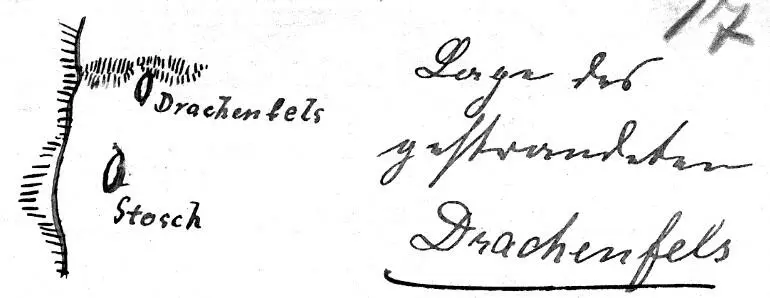 17
Drachenfels
Stosch
Lage des
gestrandeten
Drachenfels